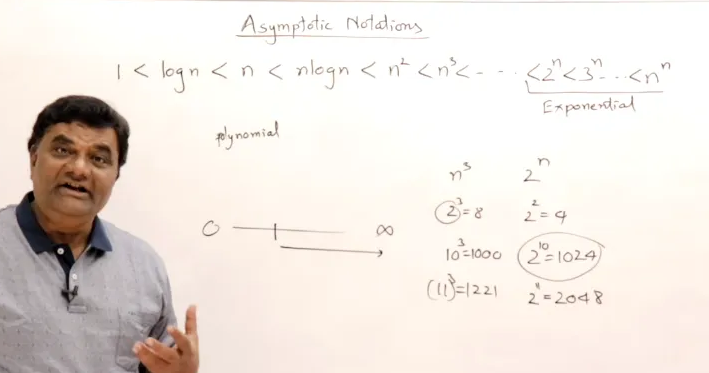 Asymptotic Notations
1 < logn < n < nlogn < n² < n³ < - - - - < 2ⁿ < 3ⁿ - - - < nⁿ
Exponential
polynomial
n³ 2ⁿ
2³=8 2²=4
0 ∞
10³=1000 2¹⁰=1024
(11)³=1221 2¹¹=2048